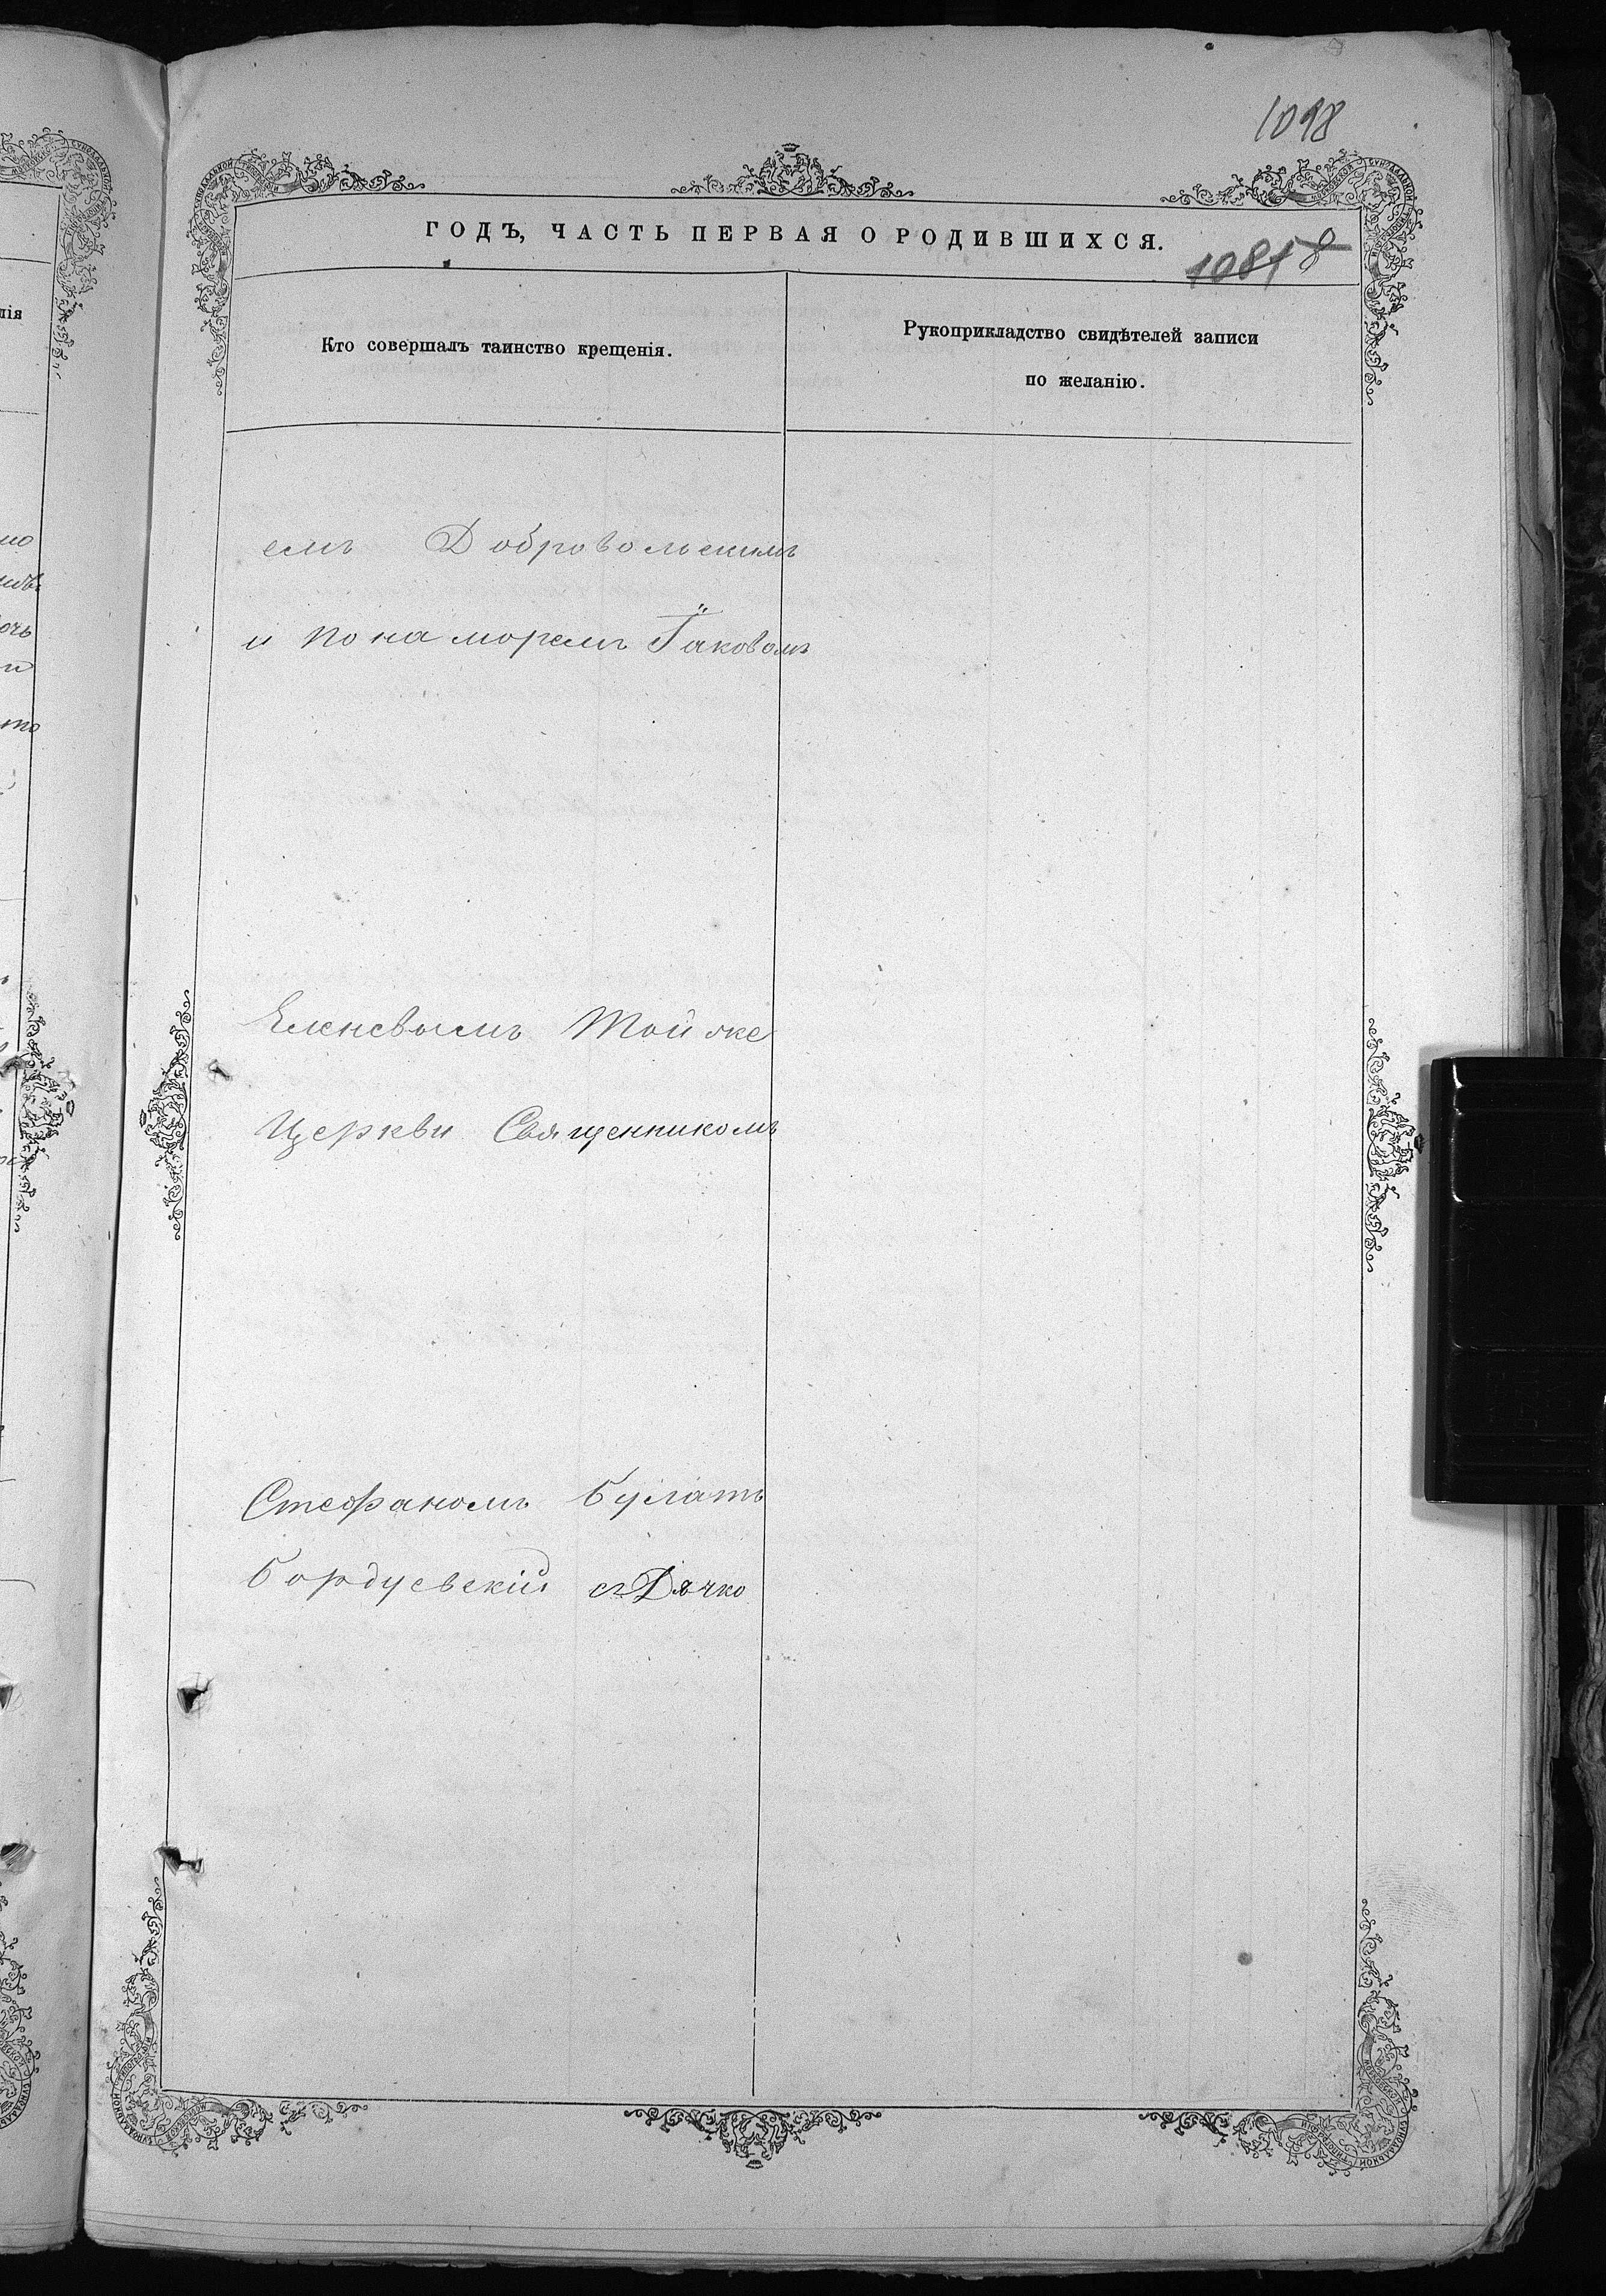 1098
ГОДЪ, ЧАСТЬ ПЕРВАЯ О РОДИВШИХСЯ.
10818
Кто совершалъ таинство крещенія.
Рукоприкладство свидѣтелей записи
по желанію.
емъ Добровольскимъ
и понаморемъ Іаковомъ
Еленевымъ Той же
Церкви Священникомъ
Стефаномъ Булатъ
Бордуевскій съ Дячко